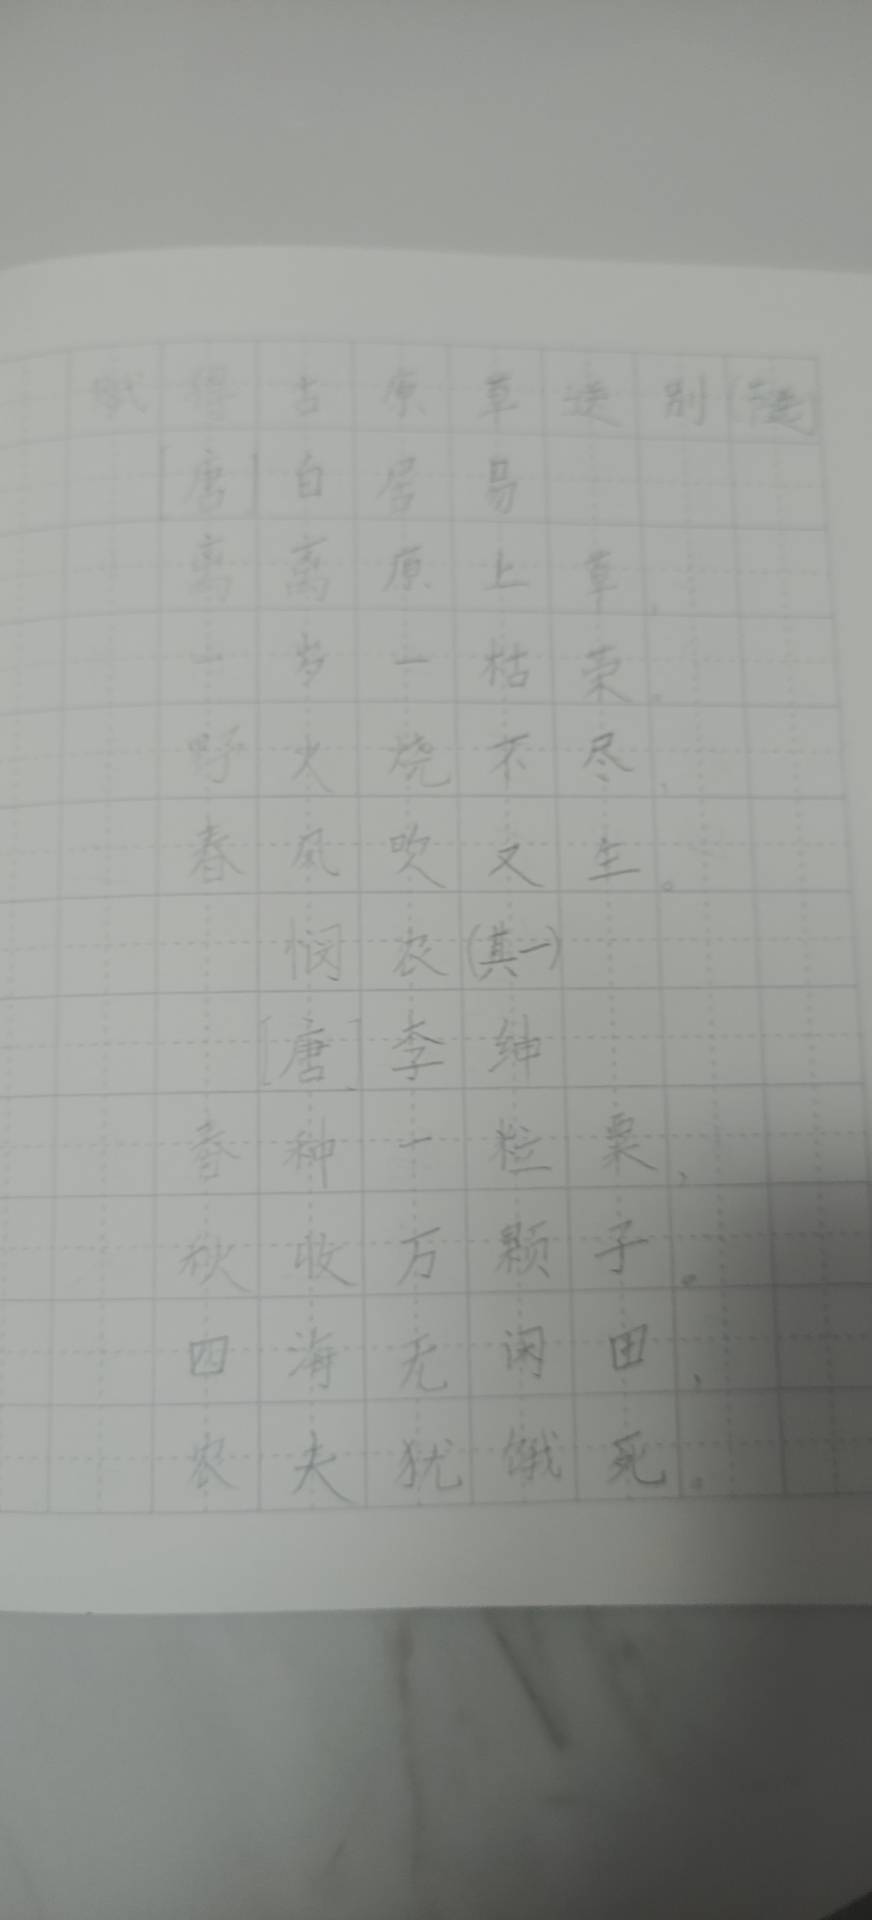 赋得古原草送别(节选)
[唐]白居易
离离原上草,
一岁一枯荣。
野火烧不尽,
春风吹又生。
悯农(其一)
[唐]李绅
春种一粒粟,
秋收万颗子。
四海无闲田,
农夫犹饿死。